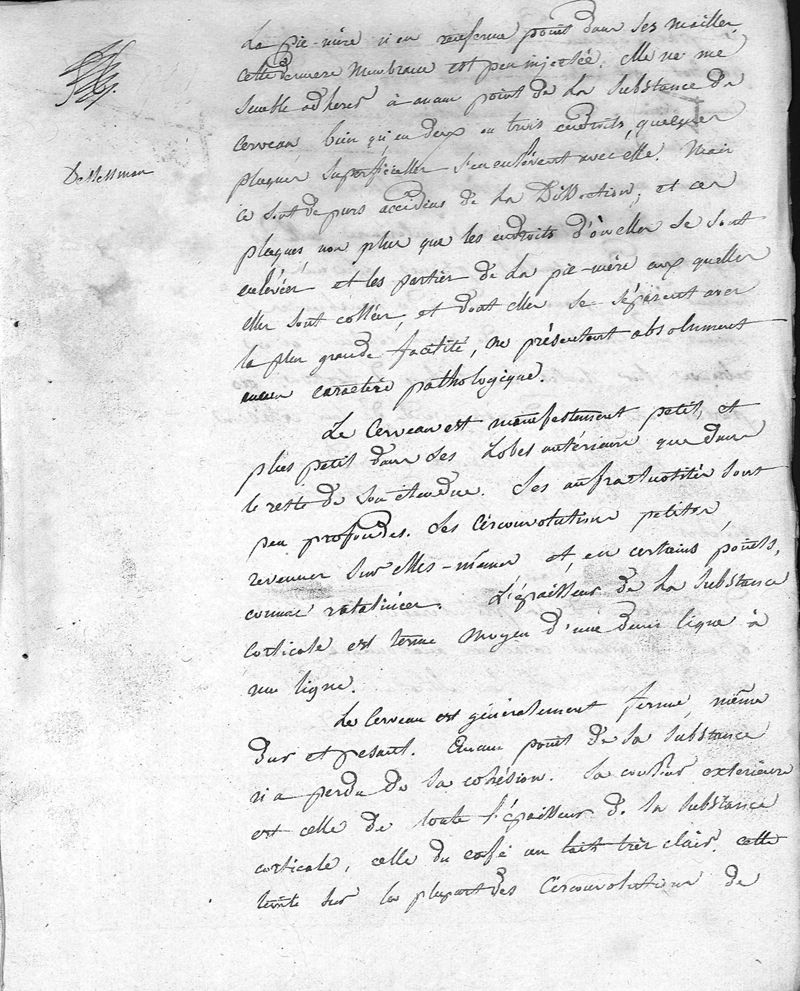 La pie-mère n'en renferme point dans ses mailles.
cette dernière membrane est peu injectée. elle ne me
semble adhérer à aucun point de la substance du
cerveau bien qu'en deux ou trois endroits, quelques
plaques superficielles s'en enlèvent avec elle. mais
ce sont de purs accidens de la Dissection; et ces
plaques non plus que les endroits d'où elles se sont
enlevées et les parties de la pie-mère aux quelles
elles sont collées, et dont elles se séparent avec
la plus grande facilité, ne présentent absolument
aucun caractère pathologique.
Le Cerveau est manifestement petit, et
plus petit dans ses Lobes antérieurs que dans
le reste de son étendue. Ses anfractuosités sont
peu profondes. Les Circonvolutions petites,
revenues sur elles-mêmes et, en certains points,
comme ratatinées. L'épaisseur de la substance
corticale est terme moyen d'une demi ligne à
une ligne.
Le Cerveau est généralement ferme, même
dur et pesant. Aucun point de sa substance
n'a perdu de sa cohésion. Sa couleur extérieure
est celle de toute l'épaisseur de la substance
corticale, celle du café au lait très clair. cette
teinte sur la plupart des Circonvolutions de